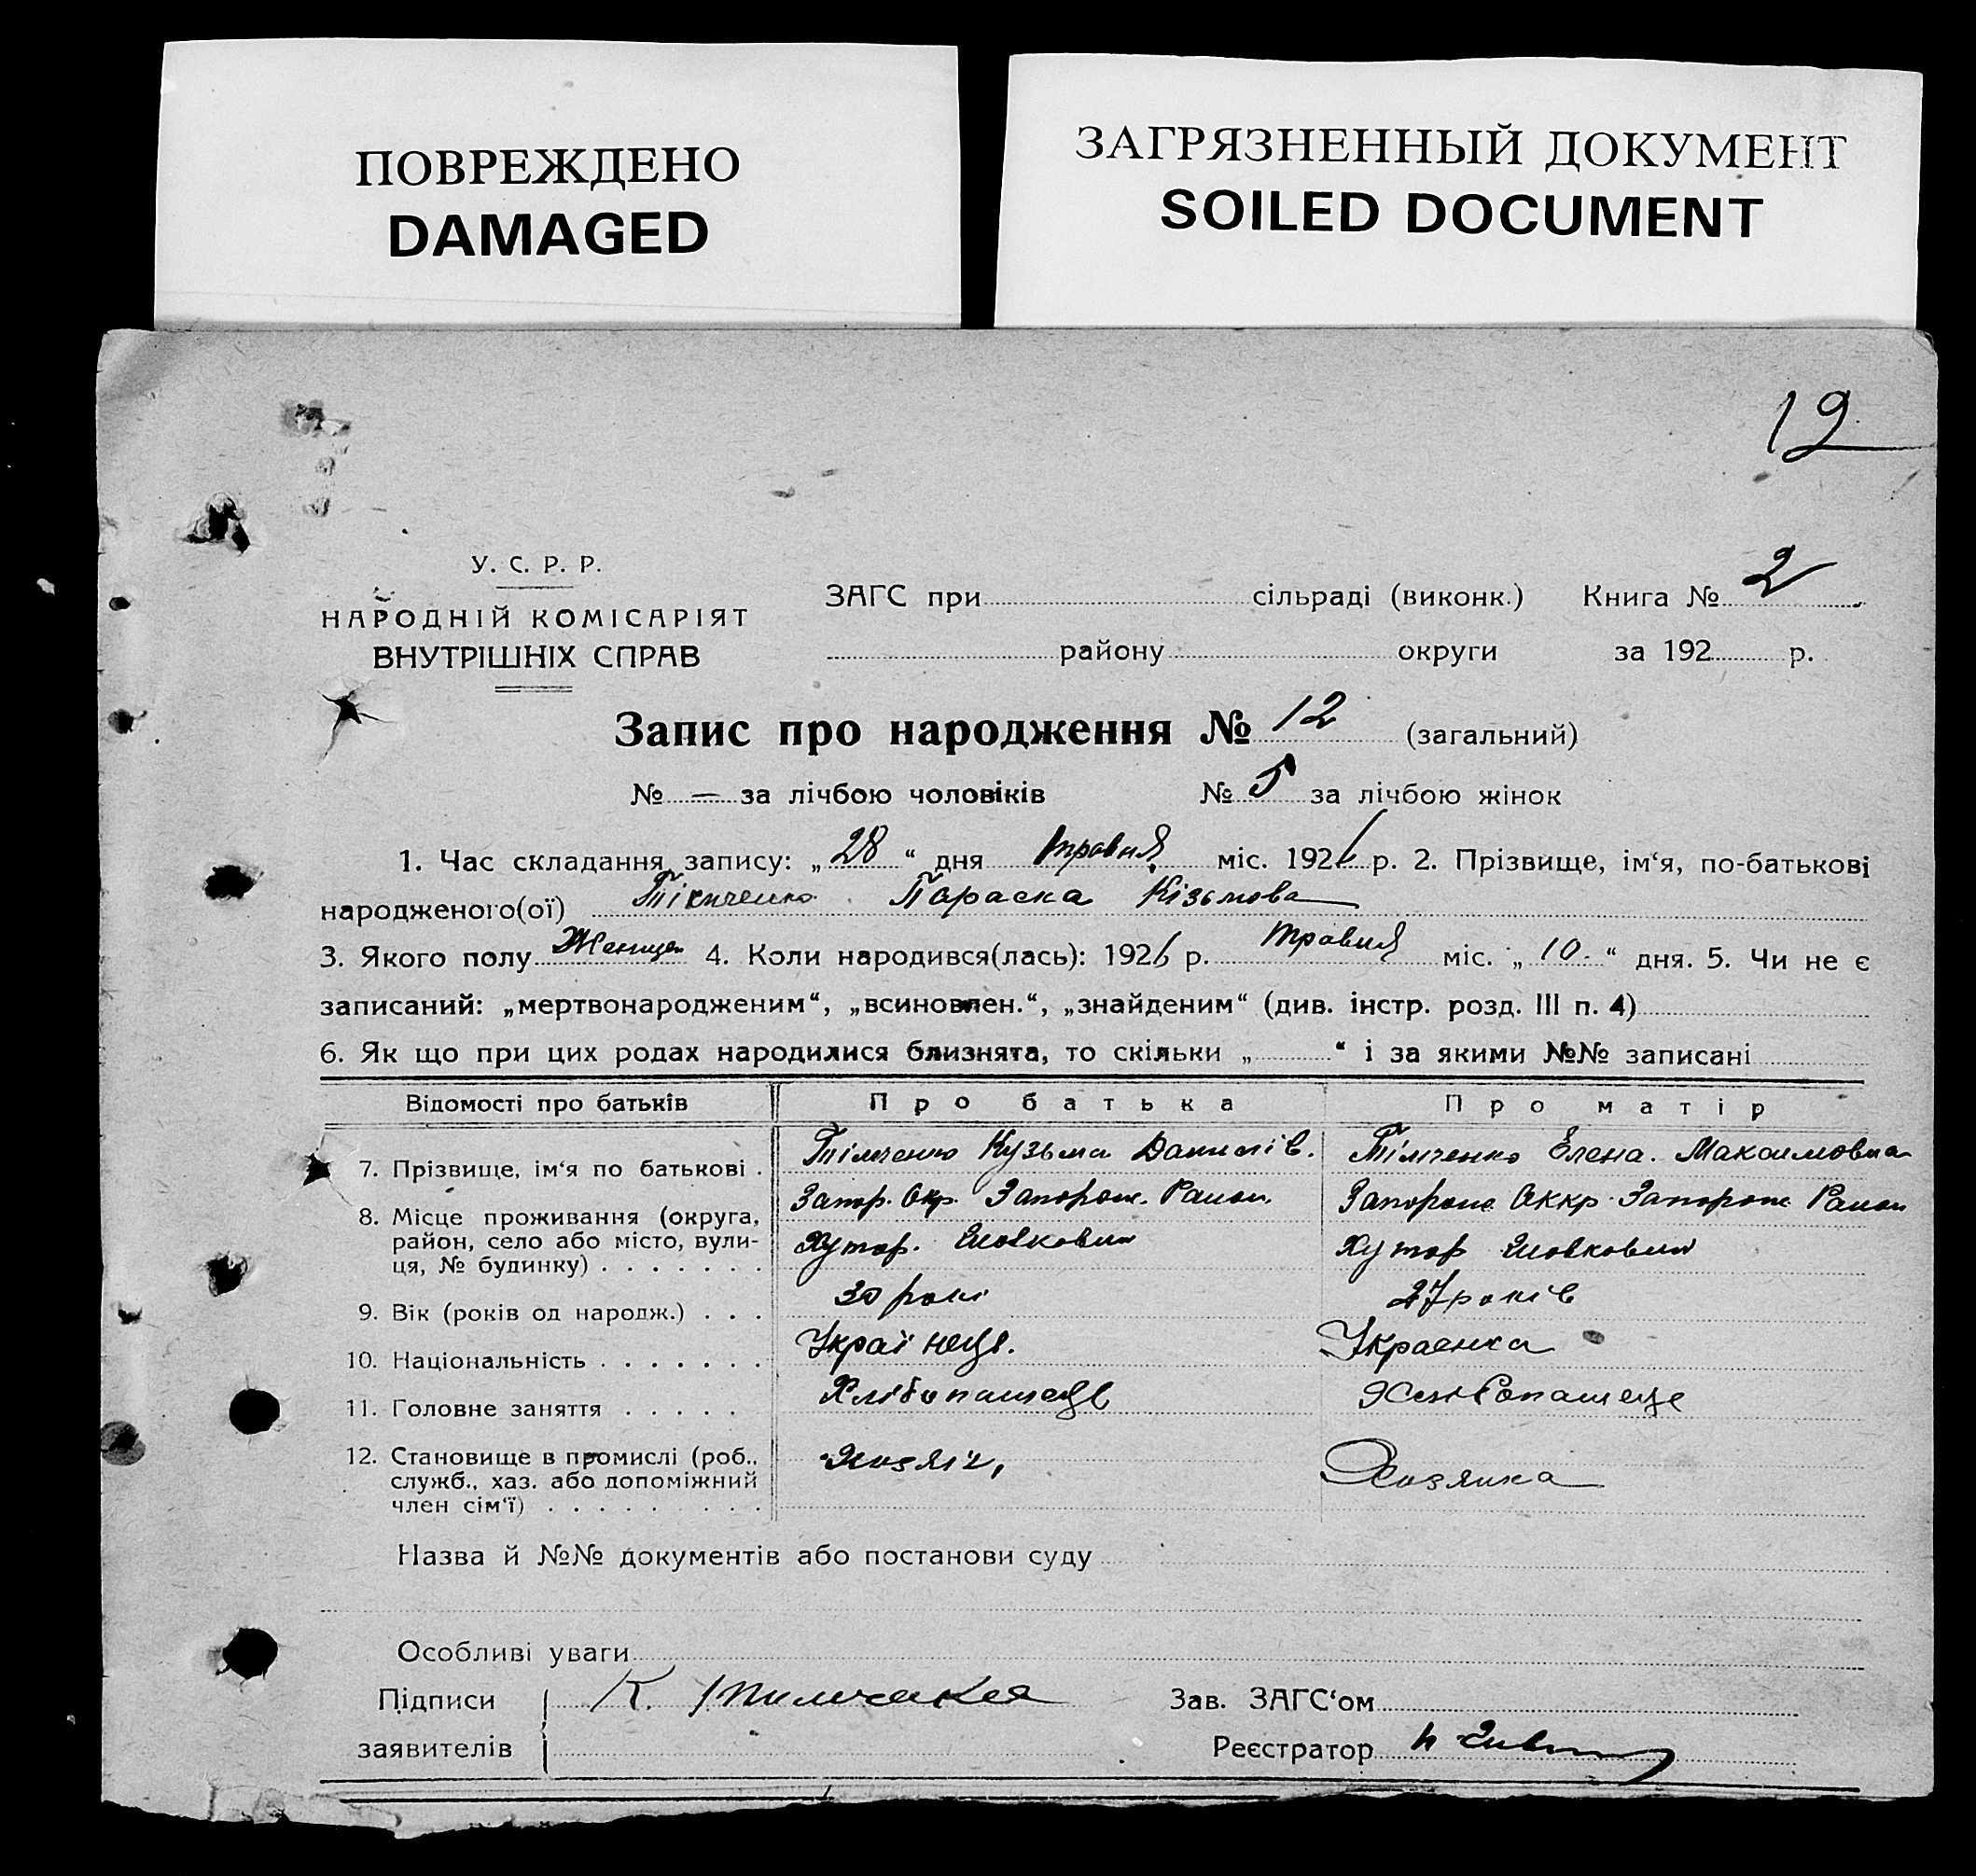 ПОВРЕЖДЕНО
DAMAGED
ЗАГРЯЗНЕННЫЙ ДОКУМЕНТ
SOILED DOCUMENT
19
У. С. Р. Р.
НАРОДНІЙ КОМІСАРІЯТ
ВНУТРІШНІХ СПРАВ
ЗАГС при сільраді (виконк.) Книга № 2
району округи за 192 р.
Запис про народження № 12 (загальний)
№ — за лічбою чоловіків № 5 за лічбою жінок
1. Час складання запису: „28“ дня травня міс. 1926 р. 2. Прізвище, ім‘я, по-батькові
народженого(ої) Параска Кізьмова
3. Якого полу 4. Коли народився(лась): 1926 р. травня міс. „10.“ дня. 5. Чи не є
записаний: „мертвонародженим“, „всиновлен.“, „знайденим“ (див. інстр. розд. III п. 4)
6. Як що при цих родах народилися близнята, то скільки „ “ і за якими №№ записані
Відомості про батьків Про батька Про матір
7. Прізвище, ім‘я по батькові . Тілченко Кузьма Данилів. Тілченко Елена. Максимовна
8. Місце проживання (округа, Запор. Окр. Запорож. Район Запорож Оккр. Запорож Район
район, село або місто, вули- Хутор. Хутор
ця, № будинку) . . . . . . .
9. Вік (років од народж.) . . . 30 рокі 27 років
10. Національність . . . . . . . Українець. Украенка
11. Головне заняття . . . . . Хлібопашець
12. Становище в промислі (роб., Хозяін, Хозяика
служб., хаз. або допоміжний
член сім‘ї) . . . . . . . . .
Назва й №№ документів або постанови суду
Особливі уваги
Підписи К. Зав. ЗАГС‘ом
заявителів Реєстратор